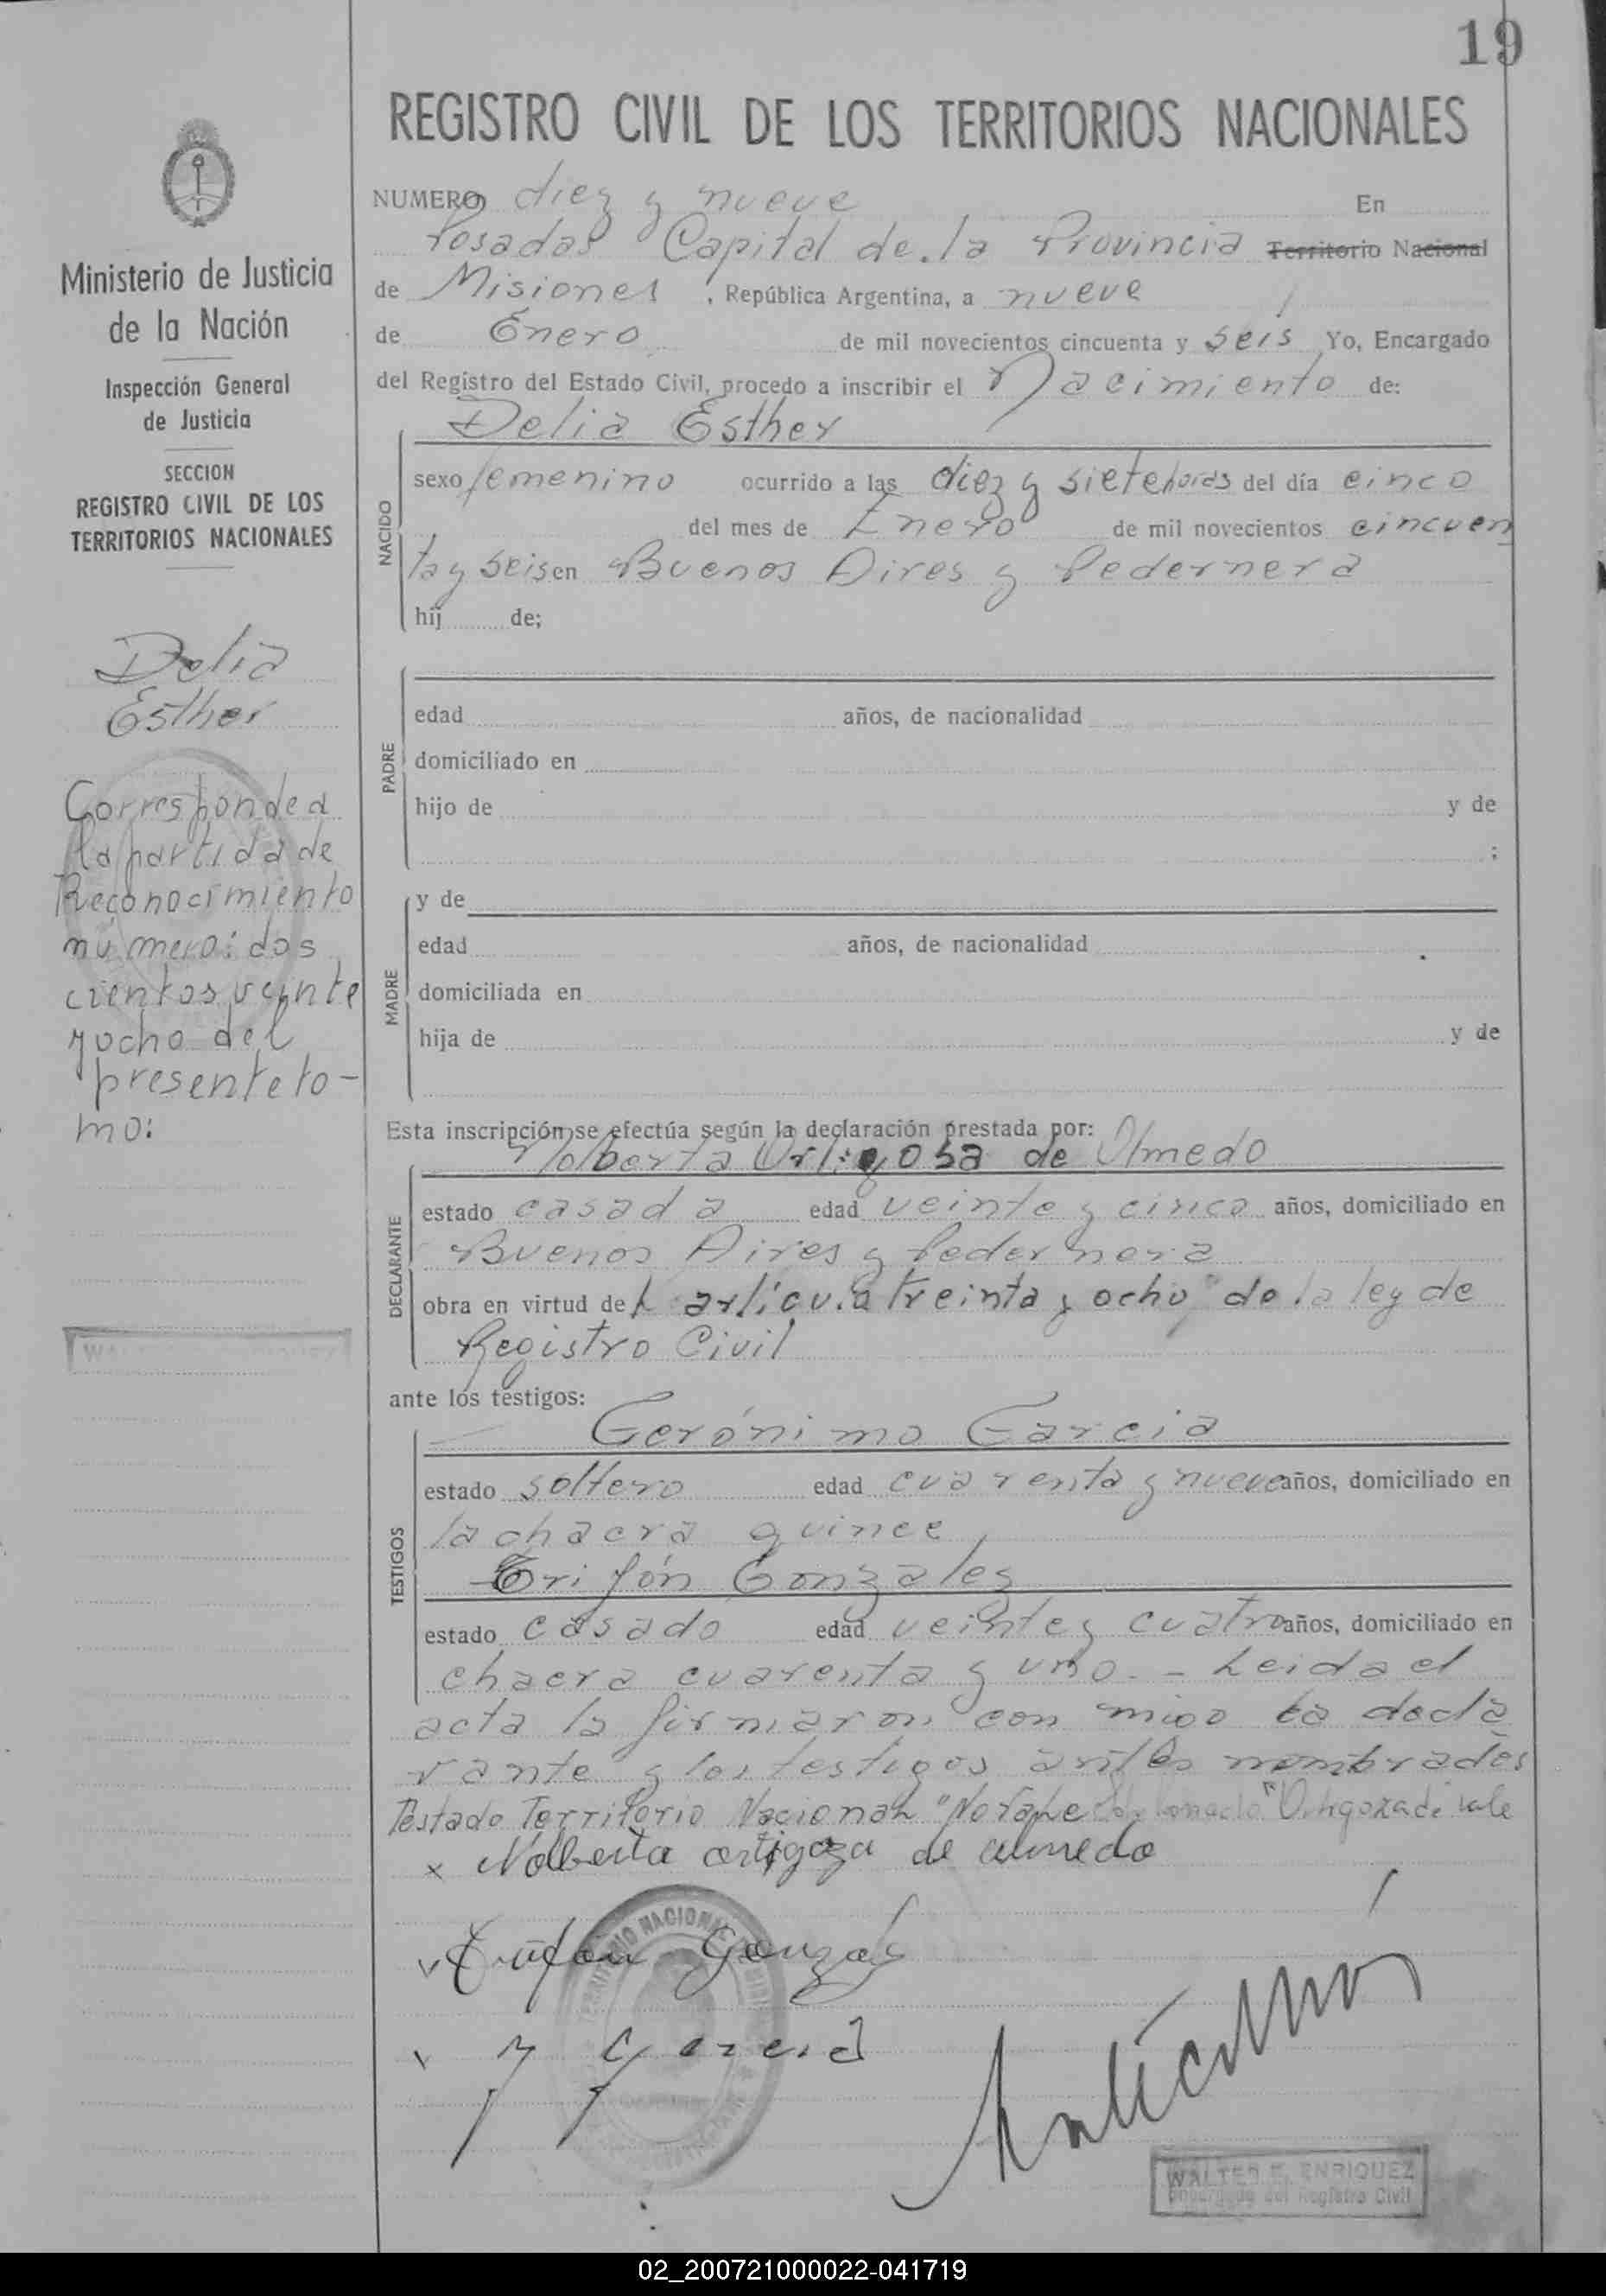 19
REGISTRO CIVIL DE LOS TERRITORIOS NACIONALES
Ministerio de Justicia
de la Nación
Inspección General
de Justicia
SECCION
REGISTRO CIVIL DE LOS
TERRITORIOS NACIONALES
Delia
Esther
Corresponde a
la partida de
Reconocimiento
número: dos
cientos veinte
y ocho del
presente to-
mo:
NUMERO diez y nueve En
Posadas Capital de la Provincia Territorio Nacional
de Misiones, República Argentina, a nueve
de Enero de mil novecientos cincuenta y seis Yo, Encargado
del Registro del Estado Civil, procedo a inscribir el Nacimiento de:
Delia Esther
NACIDO
sexo femenino ocurrido a las diez y siete horas del día cinco
del mes de Enero de mil novecientos cincuen
ta y seis en Buenos Aires y Pedernera
hij de;
PADRE
edad años, de nacionalidad
domiciliado en
hijo de y de
;
MADRE
y de
edad años, de nacionalidad
domiciliada en
hija de y de
Esta inscripción se efectúa según la declaración prestada por:
Nolberta Ortigosa de Olmedo
DECLARANTE
estado casada edad veinte y cinco años, domiciliado en
Buenos Aires y Pedernera
obra en virtud del articulo treinta y ocho de la ley de
Registro Civil
ante los testigos:
Gerónimo Garcia
TESTIGOS
estado soltero edad cuarenta y nueve años, domiciliado en
la chacra quince
Trifón Gonzalez
estado casado edad veinte y cuatro años, domiciliado en
chacra cuarenta y uno. - Leida el
acta la firmaron con migo la decla
rante y los testigos antes nombrados
Testado Territorio Nacional "No vale "Ortigoza de vale
x Nolberta ortigoza de olmedo
Trifon Gonzalez
Garcia
TERRITORIO NACIONAL
WALTER E. ENRIQUEZ
Encargado del Registro Civil
02_200721000022-041719